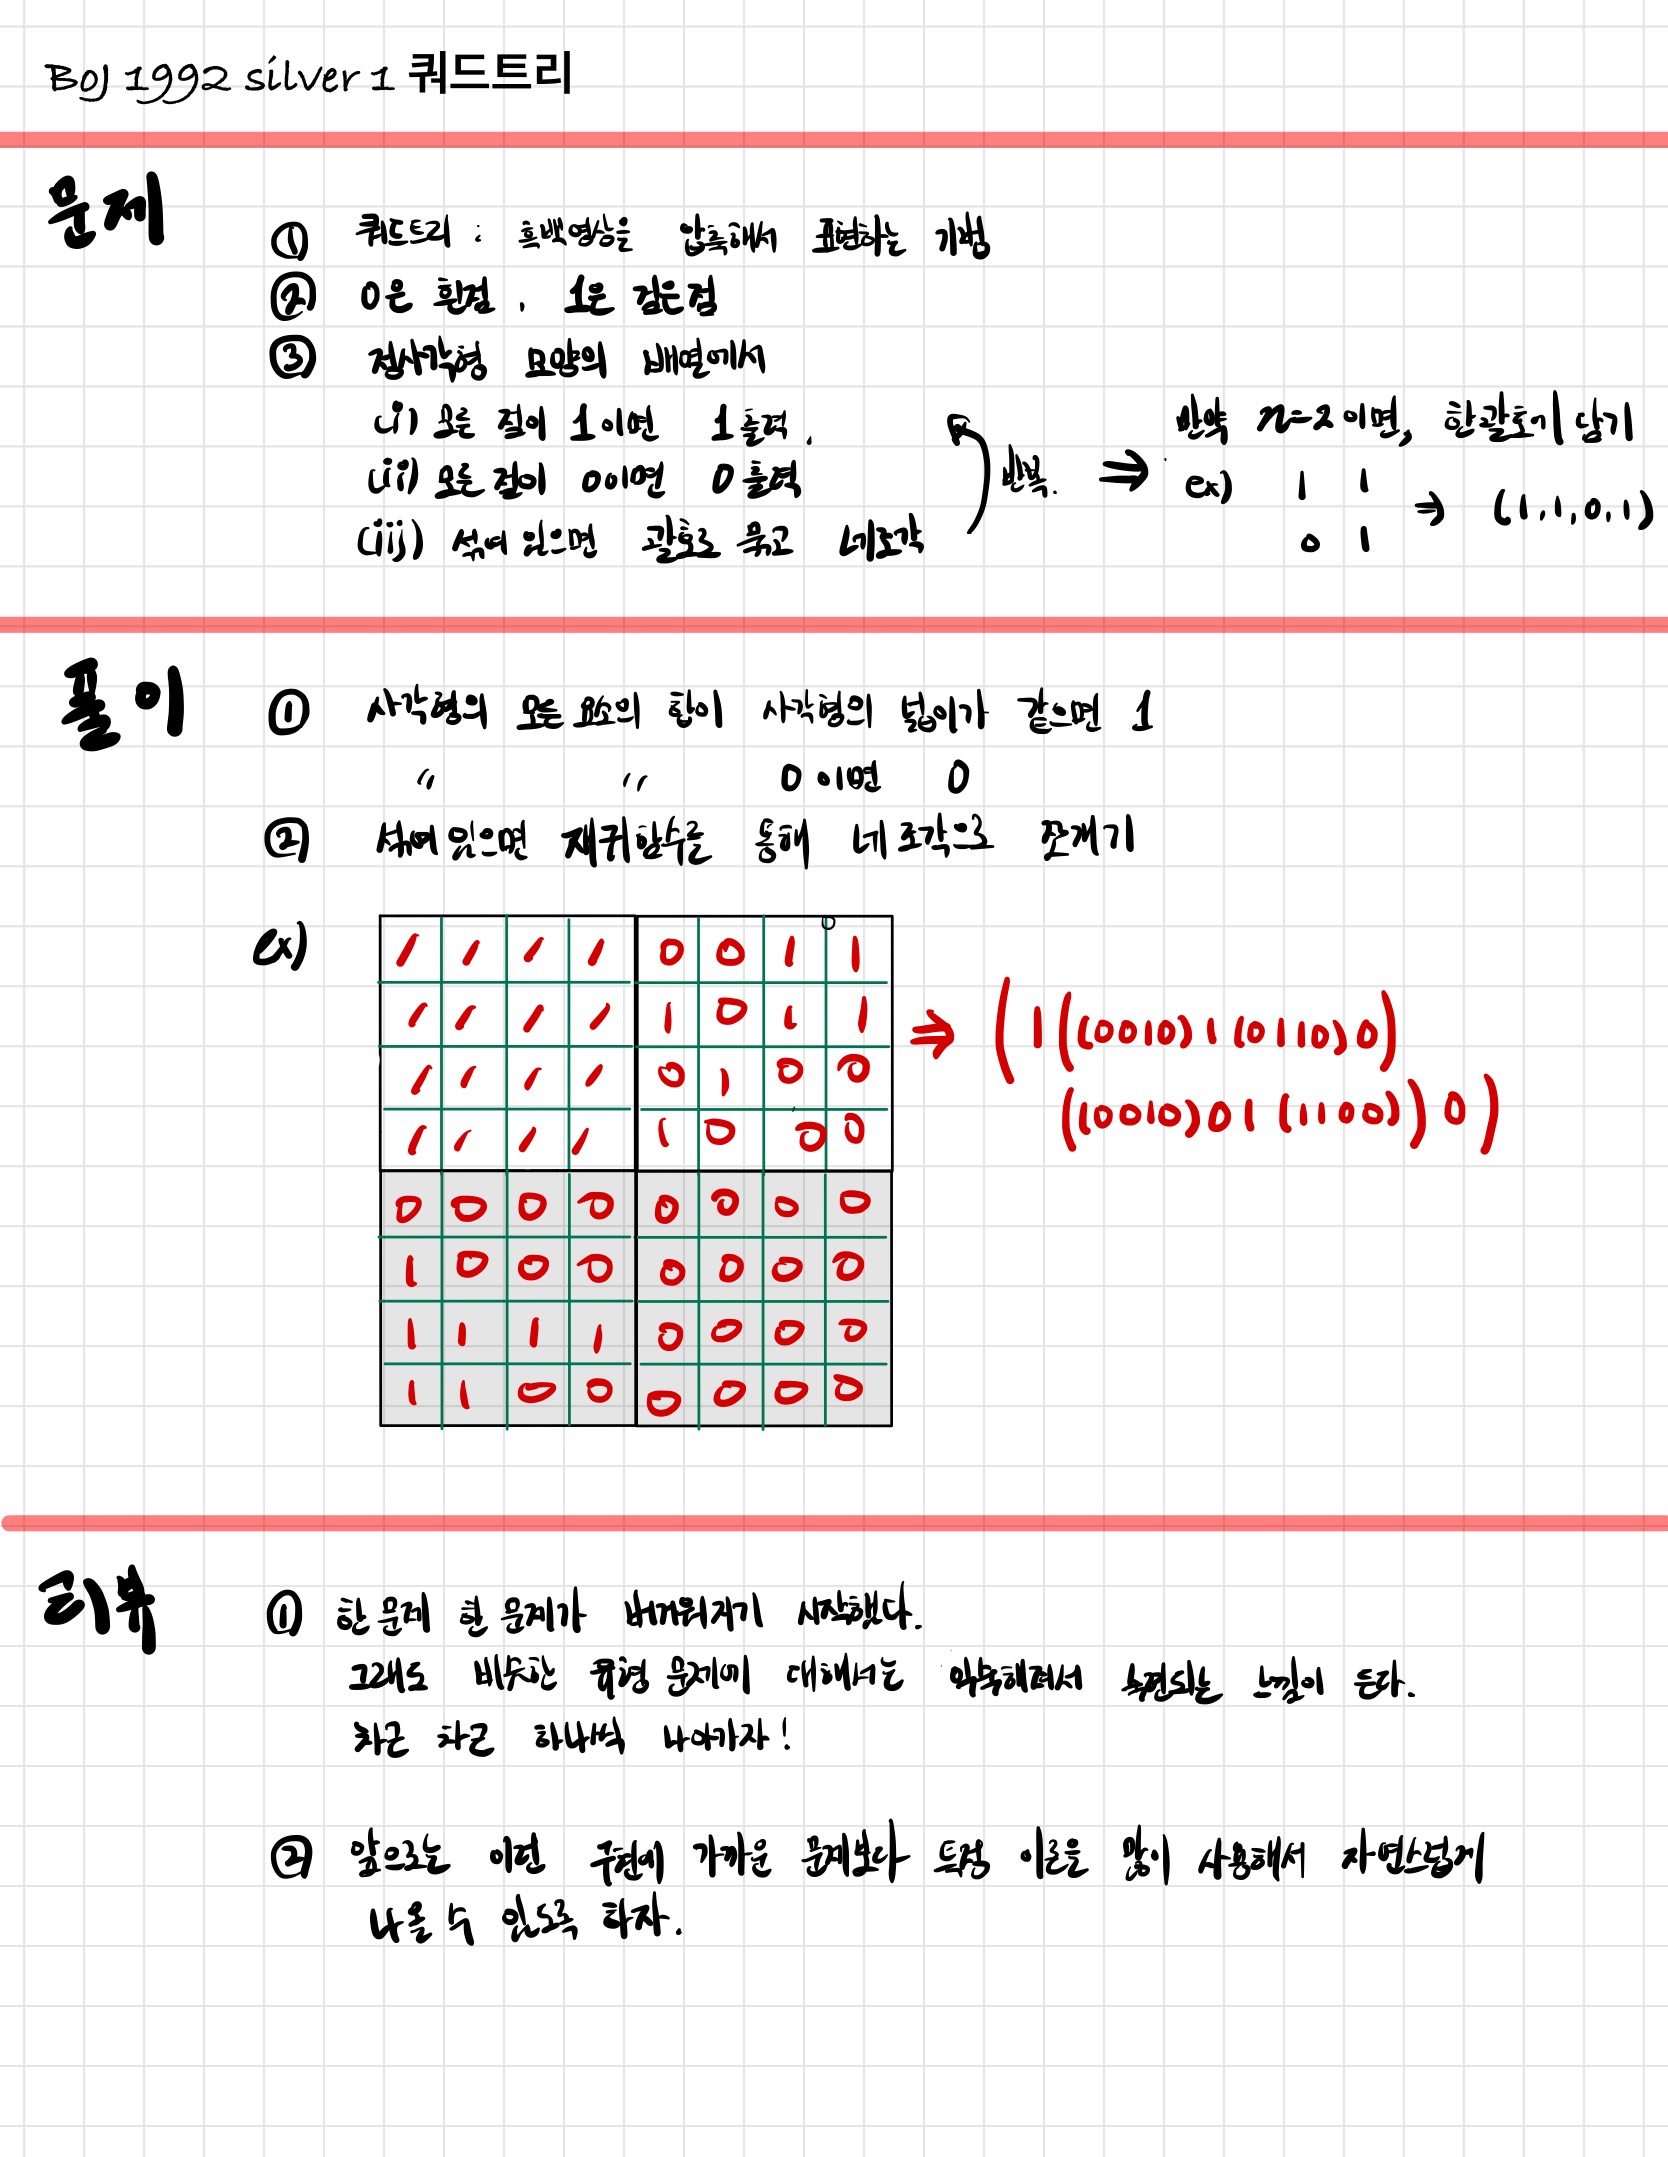 BOJ 1992 silver 1 쿼드트리
문제
① 쿼드트리 : 흑백영상을 압축해서 표현하는 기법
② 0은 흰점, 1은 검은점
③ 정사각형 모양의 배열에서
(i) 모든 점이 1이면 1출력.
(ii) 모든 점이 0이면 0출력
(iii) 섞여 있으면 괄호로 묶고 네조각
반복.
⇒ 만약 n=2이면, 한괄호에 담기
ex) 1 1
0 1
⇒ (1,1,0,1)
풀이
① 사각형의 모든요소의 합이 사각형의 넓이가 같으면 1
〃 〃 0이면 0
② 섞여있으면 재귀함수를 통해 네조각으로 쪼개기
ex)
1 1 1 1 0 0 1 1
1 1 1 1 1 0 1 1
1 1 1 1 0 1 0 0
1 1 1 1 1 0 0 0
0 0 0 0 0 0 0 0
1 0 0 0 0 0 0 0
1 1 1 1 0 0 0 0
1 1 0 0 0 0 0 0
⇒ (1((0010)1(0110)0)
((0010)01(1100))0)
리뷰
① 한문제 한문제가 버거워지기 시작했다.
그래도 비슷한 유형 문제에 대해서는 익숙해져서 숙련되는 느낌이 든다.
차근 차근 하나씩 나아가자!
② 앞으로는 이런 구현에 가까운 문제보다 특정 이론을 많이 사용해서 자연스럽게
나올 수 있도록 하자.